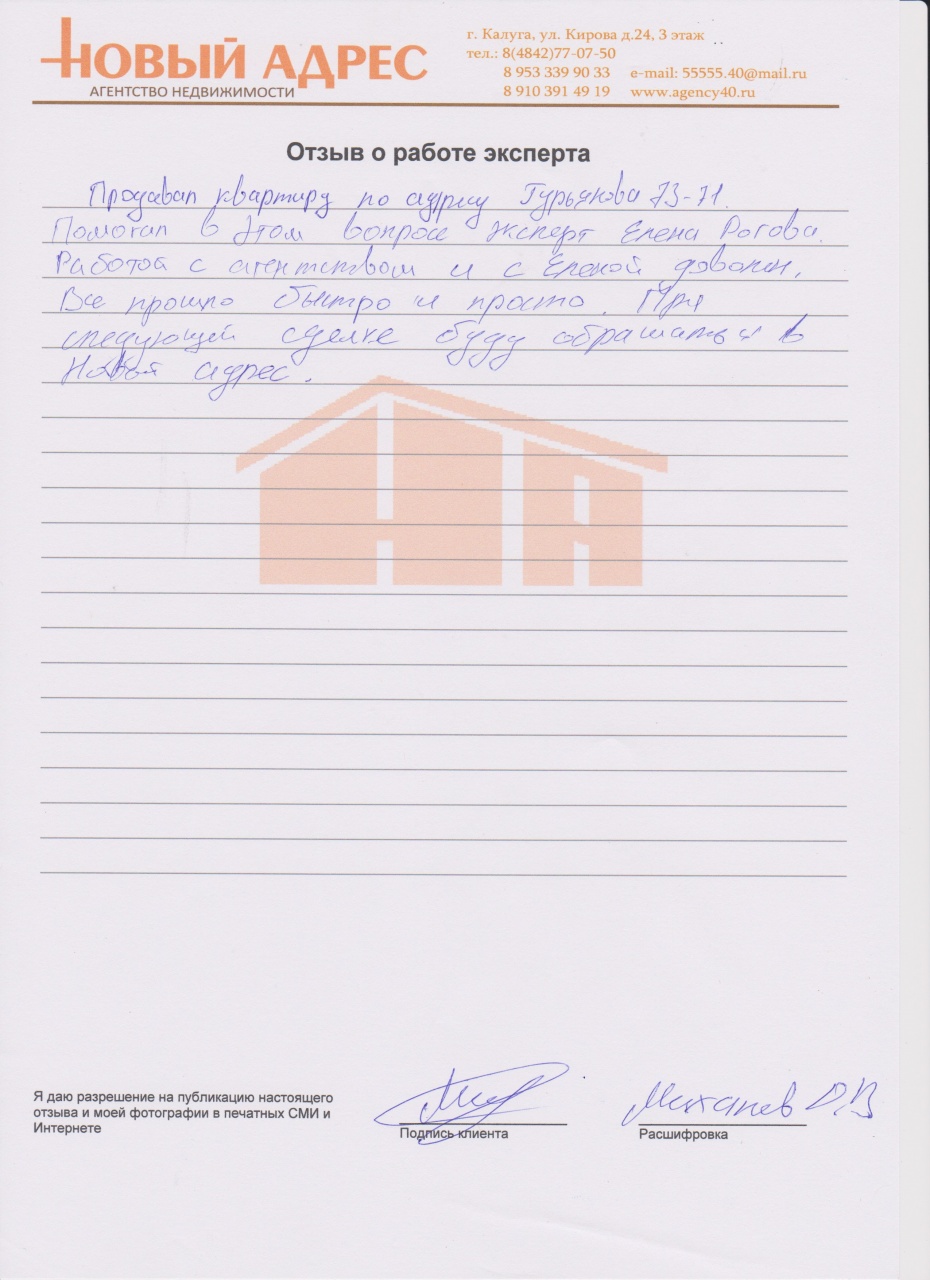 НОВЫЙ АДРЕС
АГЕНТСТВО НЕДВИЖИМОСТИ
г. Калуга, ул. Кирова д.24, 3 этаж
тел.: 8(4842)77-07-50
8 953 339 90 33 e-mail: 55555.40@mail.ru
8 910 391 49 19 www.agency40.ru
Отзыв о работе эксперта
Продавал квартиру по адресу Гурьянова 73-71.
Помогал в этом вопросе эксперт Елена Рогова.
Работой с агентством и с Еленой доволен.
Все прошло быстро и просто. При
следующей сделке буду обращаться в
Новый адрес.
НА
Я даю разрешение на публикацию настоящего
отзыва и моей фотографии в печатных СМИ и
Интернете
Подпись клиента
Д.В
Расшифровка